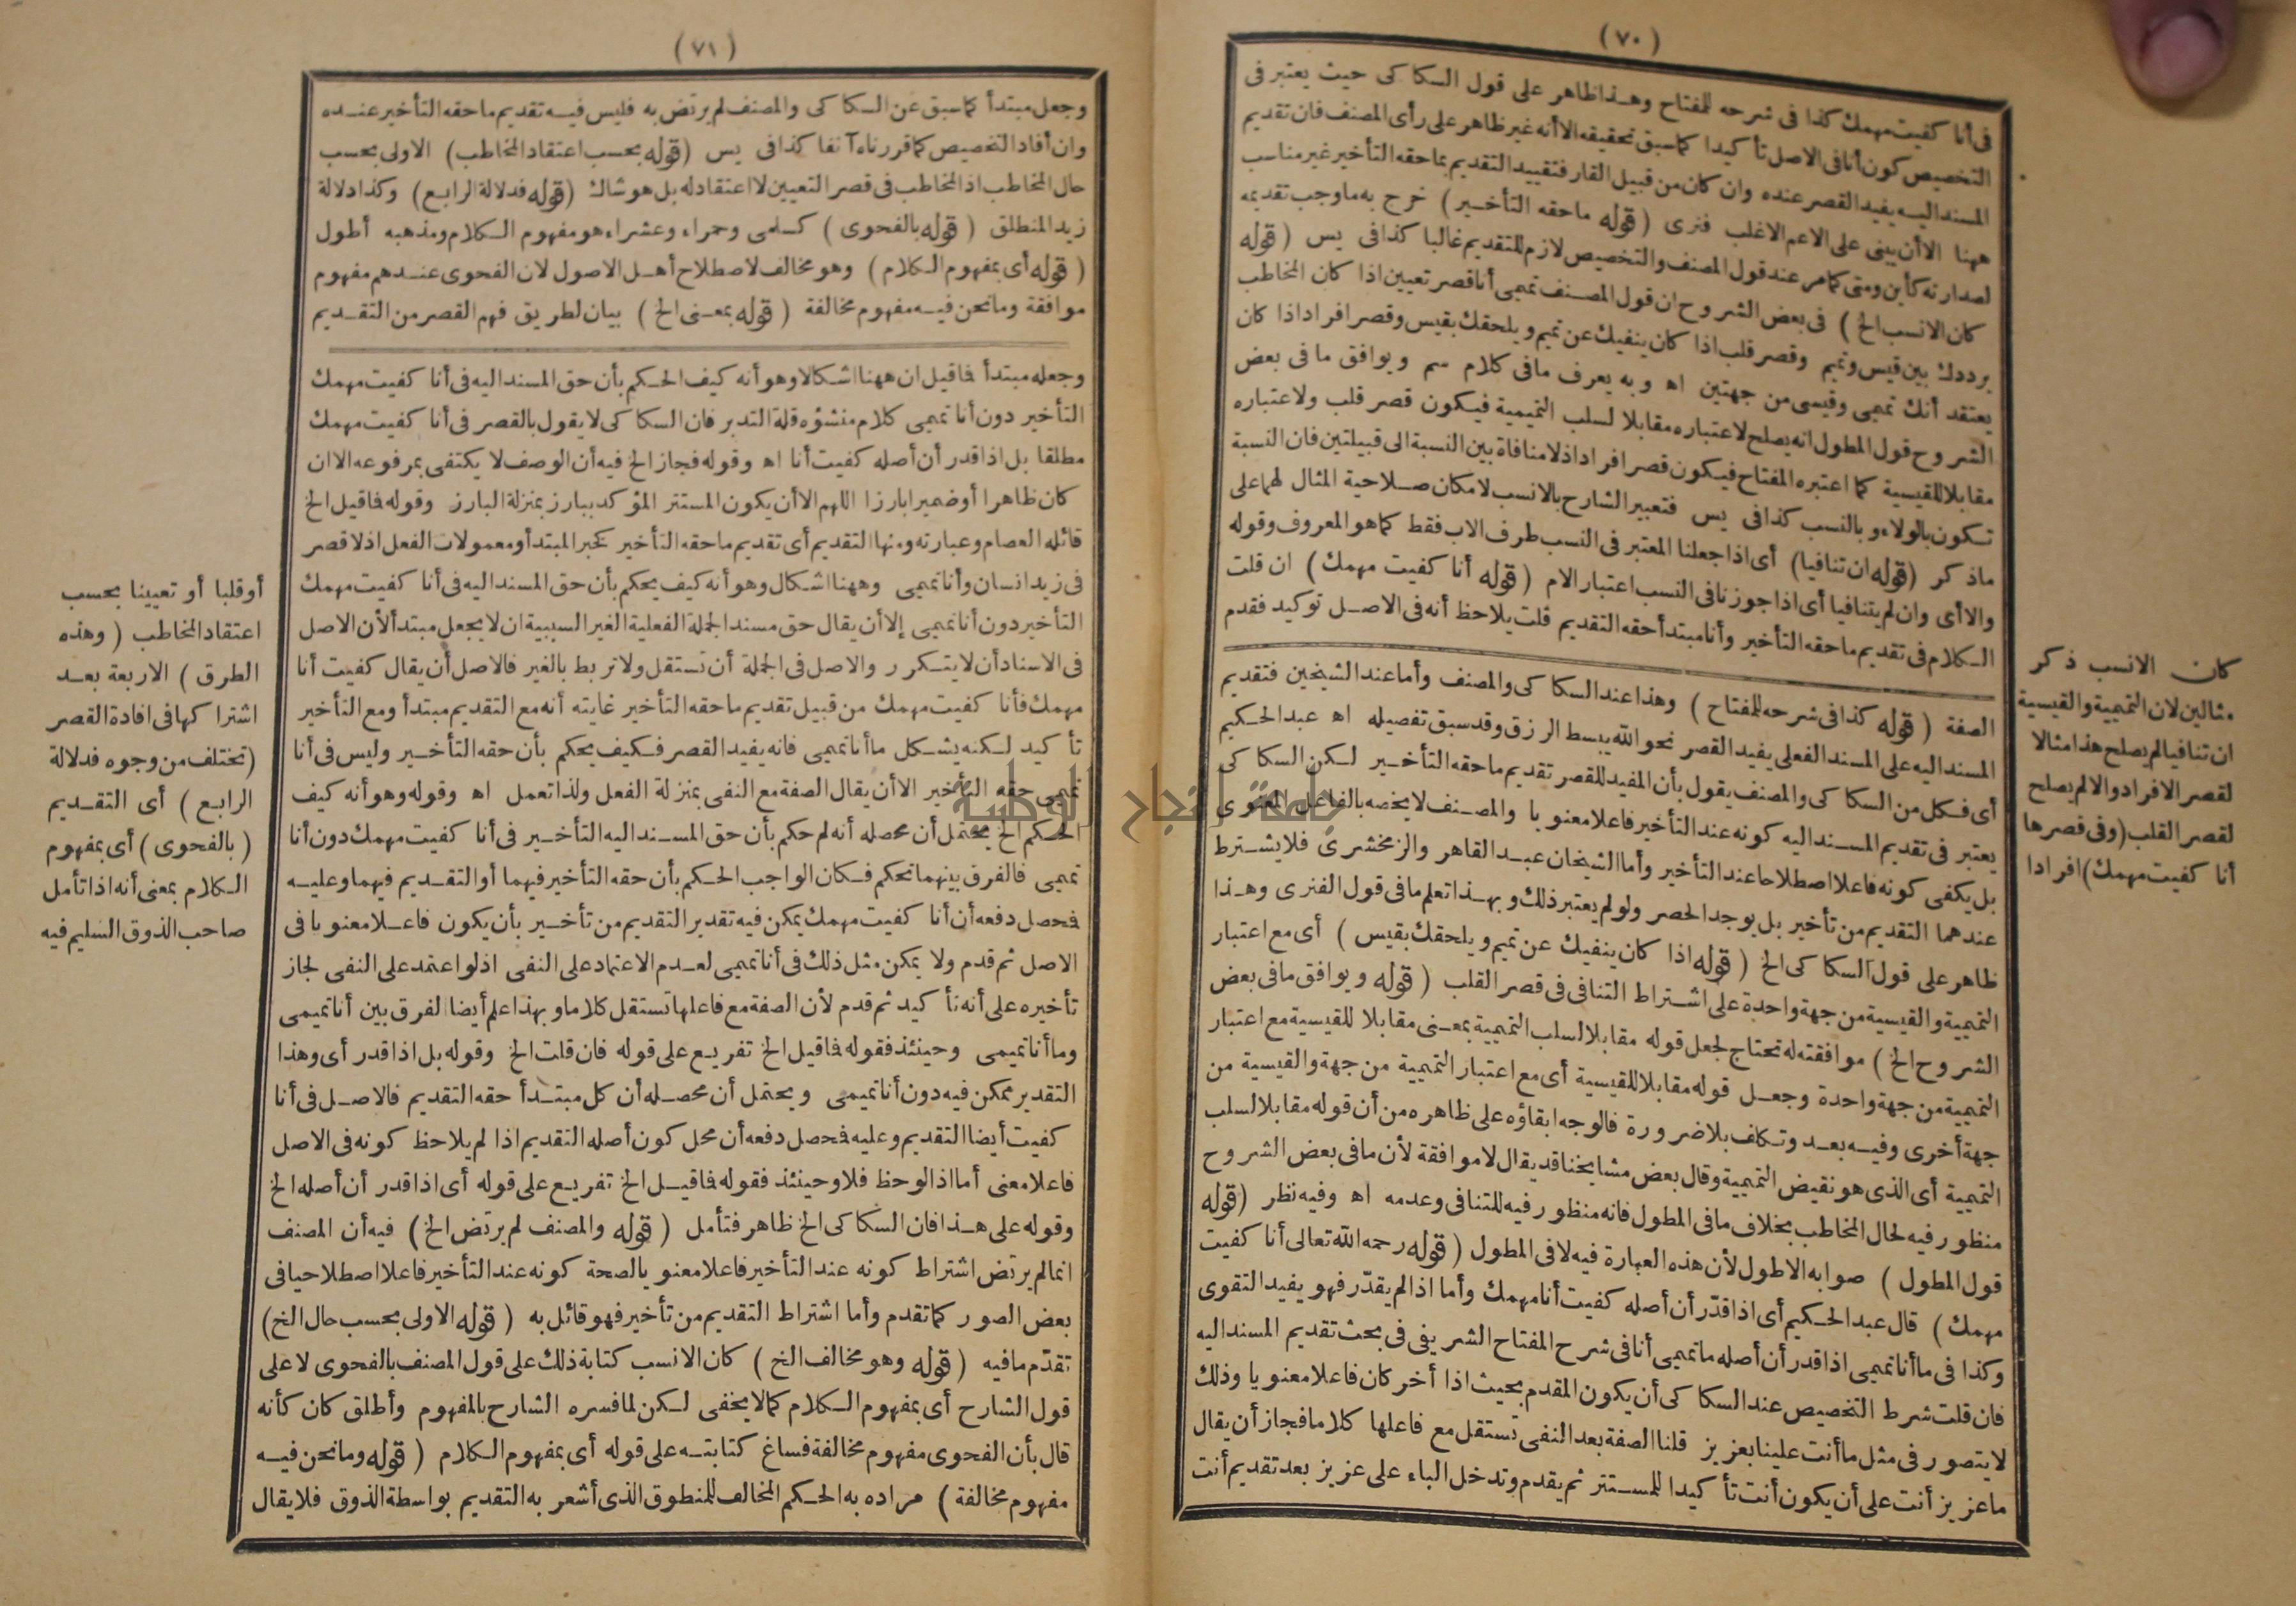 ( ٧٠ )
فى أنا كفيت مهمك كذا فى شرحه للمفتاح وهذا ظاهر على قول السكاكى حيث يعتبر فى
التخصيص كون أنا فى الاصل تأكيدا كما سبق تحقيقه الا أنه غير ظاهر على رأى المصنف فان تقديم
المسند اليه يفيد القصر عنده وان كان من قبيل القار فتقييد التقديم بما حقه التأخير غير مناسب
ههنا الا أن يبنى على الاعم الاغلب فنرى ( قوله ما حقه التأخير ) خرج به ما وجب تقديمه
لصدارته كأين ومتى كما مر عند قول المصنف والتخصيص لازم للتقديم غالبا كذا فى يس ( قوله
كان الانسب الخ ) فى بعض الشروح ان قول المصنف تميمى أنا قصر تعيين اذا كان المخاطب
يرددك بين قيس وتميم وقصر قلب اذا كان ينفيك عن تميم ويلحقك بقيس وقصر افراد اذا كان
يعتقد أنك تميمى وقيسى من جهتين اه وبه يعرف ما فى كلام سم ويوافق ما فى بعض
الشروح قول المطول انه يصلح لاعتباره مقابلا لسلب التميمية فيكون قصر قلب ولاعتباره
مقابلا للقيسية كما اعتبره المفتاح فيكون قصر افراد اذ لا منافاة بين النسبة الى قبيلتين فان النسبة
تكون بالولاء وبالنسب كذا فى يس فتعبير الشارح بالانسب لامكان صلاحية المثال لهما على
ماذكر ( قوله ان تنافيا ) أى اذا جعلنا المعتبر فى النسب طرف الاب فقط كما هو المعروف وقوله
والا أى وان لم يتنافيا أى اذا جوزنا فى النسب اعتبار الام ( قوله أنا كفيت مهمك ) ان قلت
الكلام فى تقديم ما حقه التأخير وأنا مبتدأ حقه التقديم قلت يلاحظ أنه فى الاصل توكيد فقدم
الصفة ( قوله كذا فى شرحه للمفتاح ) وهذا عند السكاكى والمصنف وأما عند الشيخين فتقديم
المسند اليه على المسند الفعلى يفيد القصر نحو الله يبسط الرزق وقد سبق تفصيله اه عبد الحكيم
أى فكل من السكاكى والمصنف يقول بأن المفيد للقصر تقديم ما حقه التأخير لكن السكاكى
يعتبر فى تقديم المسند اليه كونه عند التأخير فاعلا معنويا والمصنف لا يخصه بالفاعل المعنوى
بل يكفى كونه فاعلا اصطلاحا عند التأخير وأما الشيخان عبد القاهر والزمخشرى فلا يشترط
عندهما التقديم من تأخير بل يوجد الحصر ولو لم يعتبر ذلك وبهذا تعلم ما فى قول الفنرى وهذا
ظاهر على قول السكاكى الخ ( قوله اذا كان ينفيك عن تميم ويلحقك بقيس ) أى مع اعتبار
التميمية والقيسية من جهة واحدة على اشتراط التنافى فى قصر القلب ( قوله ويوافق ما فى بعض
الشروح الخ ) موافقته له تحتاج لجعل قوله مقابلا لسلب التميمية بمعنى مقابلا للقيسية مع اعتبار
التميمية من جهة واحدة وجعل قوله مقابلا للقيسية أى مع اعتبار التميمية من جهة والقيسية من
جهة أخرى وفيه بعد وتكلف بلا ضرورة فالوجه ابقاؤه على ظاهره من أن قوله مقابلا لسلب
التميمية أى الذى هو نقيض التميمية وقال بعض مشايخنا قد يقال لا موافقة لأن ما فى بعض الشروح
منظور فيه لحال المخاطب بخلاف ما فى المطول فانه منظور فيه للتنافى وعدمه اه وفيه نظر ( قوله
قول المطول ) صوابه الاطول لأن هذه العبارة فيه لا فى المطول ( قوله رحمه الله تعالى أنا كفيت
مهمك ) قال عبد الحكيم أى اذا قدّر أن أصله كفيت أنا مهمك وأما اذا لم يقدّر فهو يفيد التقوى
وكذا فى ما أنا تميمى اذا قدر أن أصله ما تميمى أنا فى شرح المفتاح الشريفى فى بحث تقديم المسند اليه
فان قلت شرط التخصيص عند السكاكى أن يكون المقدم بحيث اذا أخر كان فاعلا معنويا وذلك
لا يتصور فى مثل ما أنت علينا بعزيز قلنا الصفة بعد النفى تستقل مع فاعلها كلاما فجاز أن يقال
ما عزيز أنت على أن يكون أنت تأكيدا للمستتر ثم يقدم وتدخل الباء على عزيز بعد تقديم أنت
كان الانسب ذكر
مثالين لان التميمية والقيسية
ان تنافيا لم يصلح هذا مثالا
لقصر الافراد والا لم يصلح
لقصر القلب ( وفى قصرها
أنا كفيت مهمك ) افرادا
( ٧١ )
وجعل مبتدأ كما سبق عن السكاكى والمصنف لم يرتض به فليس فيه تقديم ما حقه التأخير عنده
وان أفاد التخصيص كما قررناه آنفا كذا فى يس ( قوله بحسب اعتقاد المخاطب ) الاولى بحسب
حال المخاطب اذ المخاطب فى قصر التعيين لا اعتقاد له بل هو شاك ( قوله فدلالة الرابع ) وكذا دلالة
زيد المنطلق ( قوله بالفحوى ) كسلمى وحمراء وعشراء هو مفهوم الكلام ومذهبه أطول
( قوله أى بمفهوم الكلام ) وهو مخالف لاصطلاح أهل الاصول لان الفحوى عندهم مفهوم
موافقة وما نحن فيه مفهوم مخالفة ( قوله بمعنى الخ ) بيان لطريق فهم القصر من التقديم
وجعله مبتدأ فما قيل ان ههنا اشكالا وهو أنه كيف الحكم بأن حق المسند اليه فى أنا كفيت مهمك
التأخير دون أنا تميمى كلام منشؤه قلة التدبر فان السكاكى لا يقول بالقصر فى أنا كفيت مهمك
مطلقا بل اذا قدر أن أصله كفيت أنا اه وقوله فجاز الخ فيه أن الوصف لا يكتفى بمرفوعه الا ان
كان ظاهرا أو ضميرا بارزا اللهم الا أن يكون المستتر المؤكد ببارز بمنزلة البارز وقوله فما قيل الخ
قائله العصام وعبارته ومنها التقديم أى تقديم ما حقه التأخير كخبر المبتدأ ومعمولات الفعل اذ لا قصر
فى زيد انسان وأنا تميمى وههنا اشكال وهو أنه كيف يحكم بأن حق المسند اليه فى أنا كفيت مهمك
التأخير دون أنا تميمى إلا أن يقال حق مسند الجملة الفعلية الغير السببية ان لا يجعل مبتدأ لأن الاصل
فى الاسناد أن لا يتكرر والاصل فى الجملة أن تستقل ولا تربط بالغير فالاصل أن يقال كفيت أنا
مهمك فأنا كفيت مهمك من قبيل تقديم ما حقه التأخير غايته أنه مع التقديم مبتدأ ومع التأخير
تأكيد لكنه يشكل ما أنا تميمى فانه يفيد القصر فكيف يحكم بأن حقه التأخير وليس فى أنا
تميمى حقه التأخير الا أن يقال الصفة مع النفى بمنزلة الفعل ولذا تعمل اه وقوله وهو أنه كيف
الحكم الخ يحتمل أن محصله أنه لم حكم بأن حق المسند اليه التأخير فى أنا كفيت مهمك دون أنا
تميمى فالفرق بينهما تحكم فكان الواجب الحكم بأن حقه التأخير فيهما أو التقديم فيهما وعليه
فحصل دفعه أن أنا كفيت مهمك يمكن فيه تقدير التقديم من تأخير بأن يكون فاعلا معنويا فى
الاصل ثم قدم ولا يمكن مثل ذلك فى أنا تميمى لعدم الاعتماد على النفى اذ لو اعتمد على النفى لجاز
تأخيره على أنه تأكيد ثم قدم لأن الصفة مع فاعلها تستقل كلاما وبهذا علم أيضا الفرق بين أنا تميمى
وما أنا تميمى وحينئذ فقوله فما قيل الخ تفريع على قوله فان قلت الخ وقوله بل اذا قدر أى وهذا
التقدير ممكن فيه دون أنا تميمى ويحتمل أن محصله أن كل مبتدأ حقه التقديم فالاصل فى أنا
كفيت أيضا التقديم وعليه فحصل دفعه أن محل كون أصله التقديم اذا لم يلاحظ كونه فى الاصل
فاعلا معنى أما اذا لوحظ فلا وحينئذ فقوله فما قيل الخ تفريع على قوله أى اذا قدر أن أصله الخ
وقوله على هذا فان السكاكى الخ ظاهر فتأمل ( قوله والمصنف لم يرتض الخ ) فيه أن المصنف
انما لم يرتض اشتراط كونه عند التأخير فاعلا معنويا لصحة كونه عند التأخير فاعلا اصطلاحيا فى
بعض الصور كما تقدم وأما اشتراط التقديم من تأخير فهو قائل به ( قوله الاولى بحسب حال الخ )
تقدّم ما فيه ( قوله وهو مخالف الخ ) كان الانسب كتابة ذلك على قول المصنف بالفحوى لا على
قول الشارح أى بمفهوم الكلام كما لا يخفى لكن لما فسره الشارح بالمفهوم وأطلق كان كأنه
قال بأن الفحوى مفهوم مخالفة فساغ كتابته على قوله أى بمفهوم الكلام ( قوله وما نحن فيه
مفهوم مخالفة ) مراده به الحكم المخالف للمنطوق الذى أشعر به التقديم بواسطة الذوق فلا يقال
أو قلبا أو تعيينا بحسب
اعتقاد المخاطب ( وهذه
الطرق ) الاربعة بعد
اشتراكها فى افادة القصر
( تختلف من وجوه فدلالة
الرابع ) أى التقديم
( بالفحوى ) أى بمفهوم
الكلام بمعنى أنه اذا تأمل
صاحب الذوق السليم فيه
جامعة النجاح الوطنية